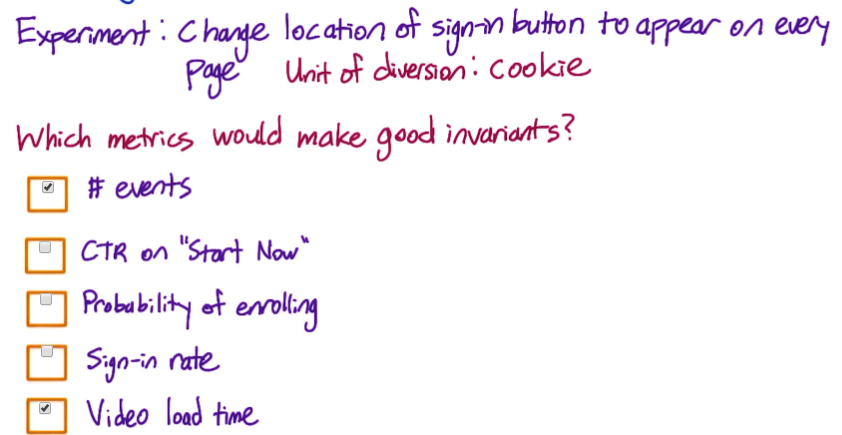 Experiment: Change location of sign-in button to appear on every
Page Unit of diversion: cookie
Which metrics would make good invariants?
# events
CTR on "Start Now"
Probability of enrolling
Sign-in rate
Video load time